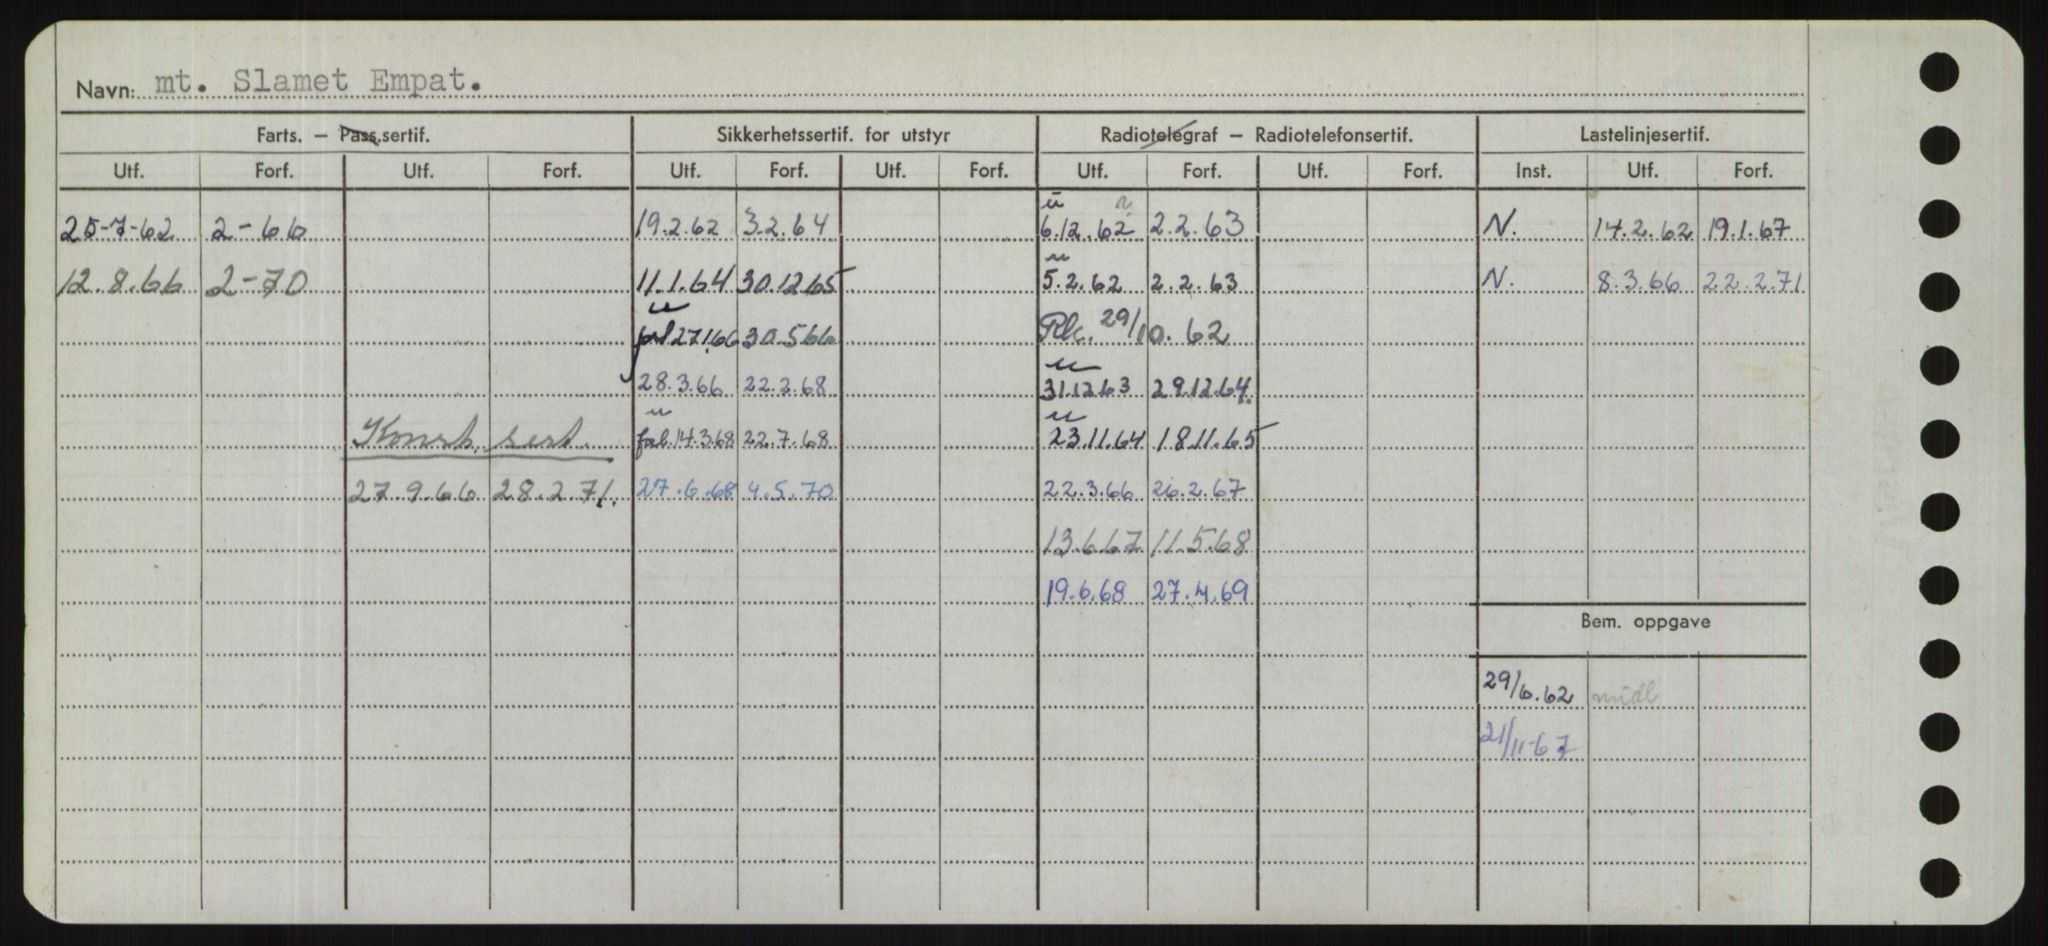 Navn: mt. Slamet Empat.
Farts. — Pass.sertif. Sikkerhetssertif. for utstyr Radiotelegraf — Radiotelefonsertif. Lastelinjesertif.
Utf. Forf. Utf. Forf. Utf. Forf. Utf. Forf. Utf. Forf. Utf. Forf. Inst. Utf. Forf.
25-7-62 2-66 19.2.62 3.2.64 u 6.12.62 2.2.63 N. 14.2.62 19.1.67
12.8.66 2-70 11.1.64 30.12.65 u 5.2.62 2.2.63 N. 8.3.66 22.2.71
u 27.1.66 30.5.66 29/10.62
28.3.66 22.2.68 u 31.12.63 29.12.64.
Konstr. sert. u 14.3.68 22.7.68 u 23.11.64 18.11.65
27.9.66 28.2.71. 27.6.68 4.5.70 22.3.66 26.2.67
13.6.67 11.5.68
19.6.68 27.4.69
Bem. oppgave
29/6.62 midl
21/11-67